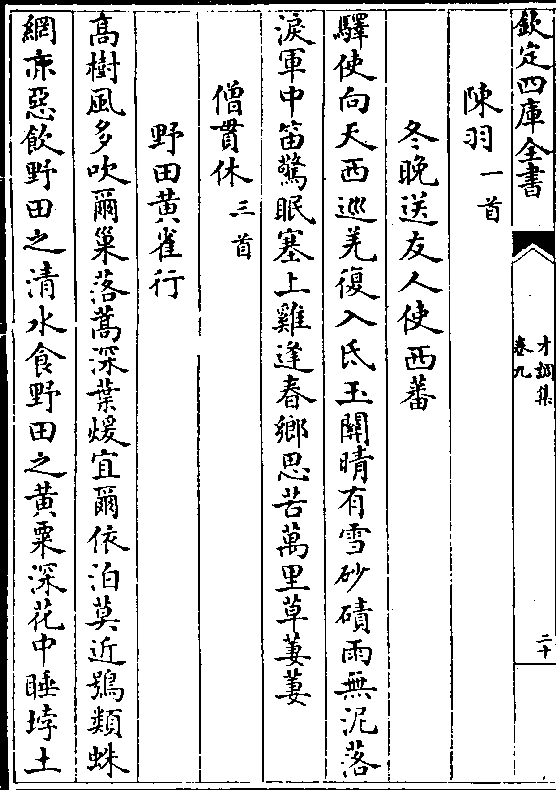 欽定四庫全書
才調集
卷九
二十
陳羽一首
冬晚送友人使西蕃
驛使向天西巡羌復入氐玉關晴有雪砂磧雨無泥落
淚軍中笛驚眠塞上雞逢春鄉思苦萬里草萋萋
僧貫休三首
野田黃雀行
高樹風多吹爾巢落蒿深葉煖宜爾依泊莫近鴞類蛛
網亦惡飲野田之清水食野田之黃粟深花中睡垺土